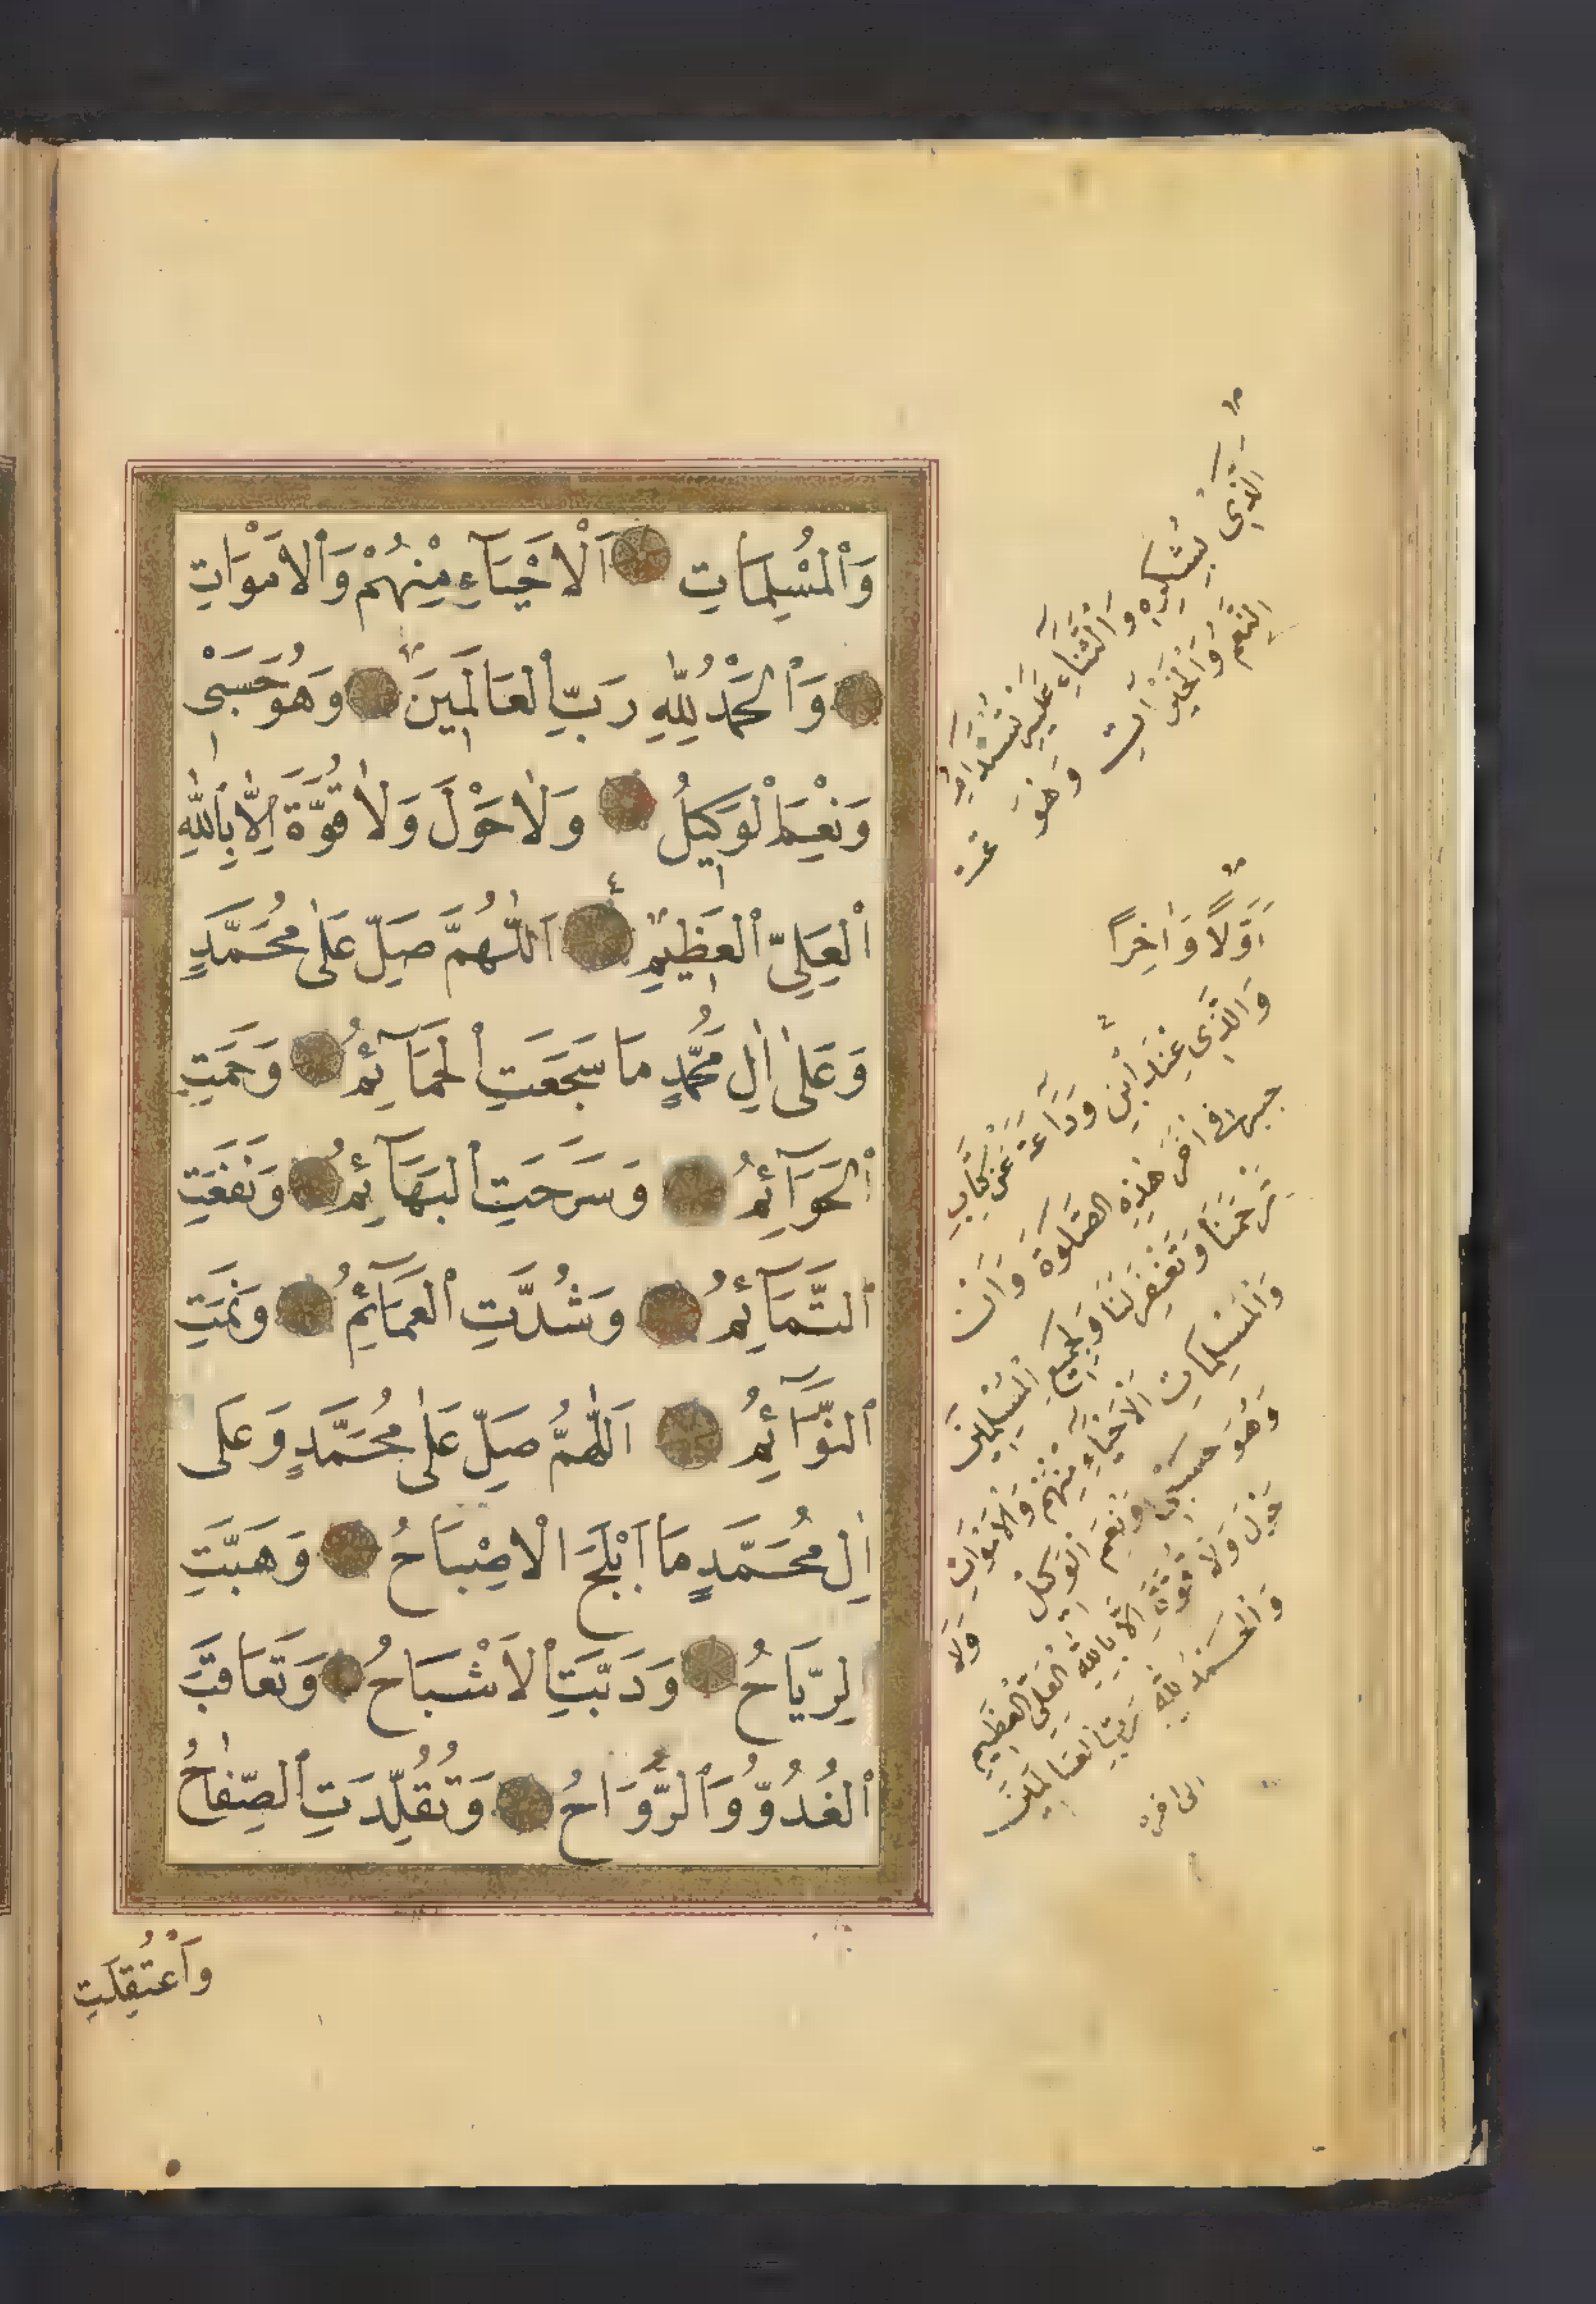 وَٱلْمُسْلِمَاتِ اَلْاَحْيَآءِ مِنْهُمْ وَالْاَمْوَاتِ
وَٱلْحَمْدُ لِلّٰهِ رَبِّ ٱلْعَالَمِينَ وَهُوَ حَسْبِى
وَنِعْمَ ٱلْوَكِيلُ وَلَا حَوْلَ وَلَا قُوَّةَ اِلَّا بِاللّٰهِ
ٱلْعَلِىِّ ٱلْعَظِيمِ اَللّٰهُمَّ صَلِّ عَلٰى مُحَمَّدٍ
وَعَلٰى اٰلِ مُحَمَّدٍ مَا سَجَعَتِ ٱلْحَمَآئِمُ وَحَمَتِ
ٱلْحَوَآئِمُ وَسَرَحَتِ ٱلْبَهَآئِمُ وَنَفَعَتِ
ٱلتَّمَآئِمُ وَشُدَّتِ ٱلْعَمَآئِمُ وَنَمَتِ
ٱلنَّوَآئِمُ اَللّٰهُمَّ صَلِّ عَلٰى مُحَمَّدٍ وَعَلٰى
اٰلِ مُحَمَّدٍ مَا اَبْلَجَ الْاِصْبَاحُ وَهَبَّتِ
لرِّيَاحُ وَدَبَّتِ ٱلْاَشْبَاحُ وَتَعَاقَبَ
ٱلْغُدُوُّ وَٱلرَّوَاحُ وَتُقُلِّدَتِ ٱلصِّفَاحُ
وَٱعْتُقِلَتِ
اَوَّلًا وَاٰخِرًا
وَالَّذِى عِنْدَ ابْنِ وَدَاعَةَ عَنْ كِتَابِ
جبر فى اٰخر هٰذِهِ الصَّلٰوةِ وَاَنْ
تَرْحَمَنَا وَتَغْفِرَ لَنَا وَلِجَمِيعِ الْمُسْلِمِينَ
وَالْمُسْلِمَاتِ الْاَحْيَآءِ مِنْهُمْ وَالْاَمْوَاتِ
وَهُوَ حَسْبُنَا وَنِعْمَ الْوَكِيلُ وَلَا
حَوْلَ وَلَا قُوَّةَ اِلَّا بِاللّٰهِ الْعَلِىِّ الْعَظِيمِ
وَالْحَمْدُ لِلّٰهِ رَبِّ الْعَالَمِينَ